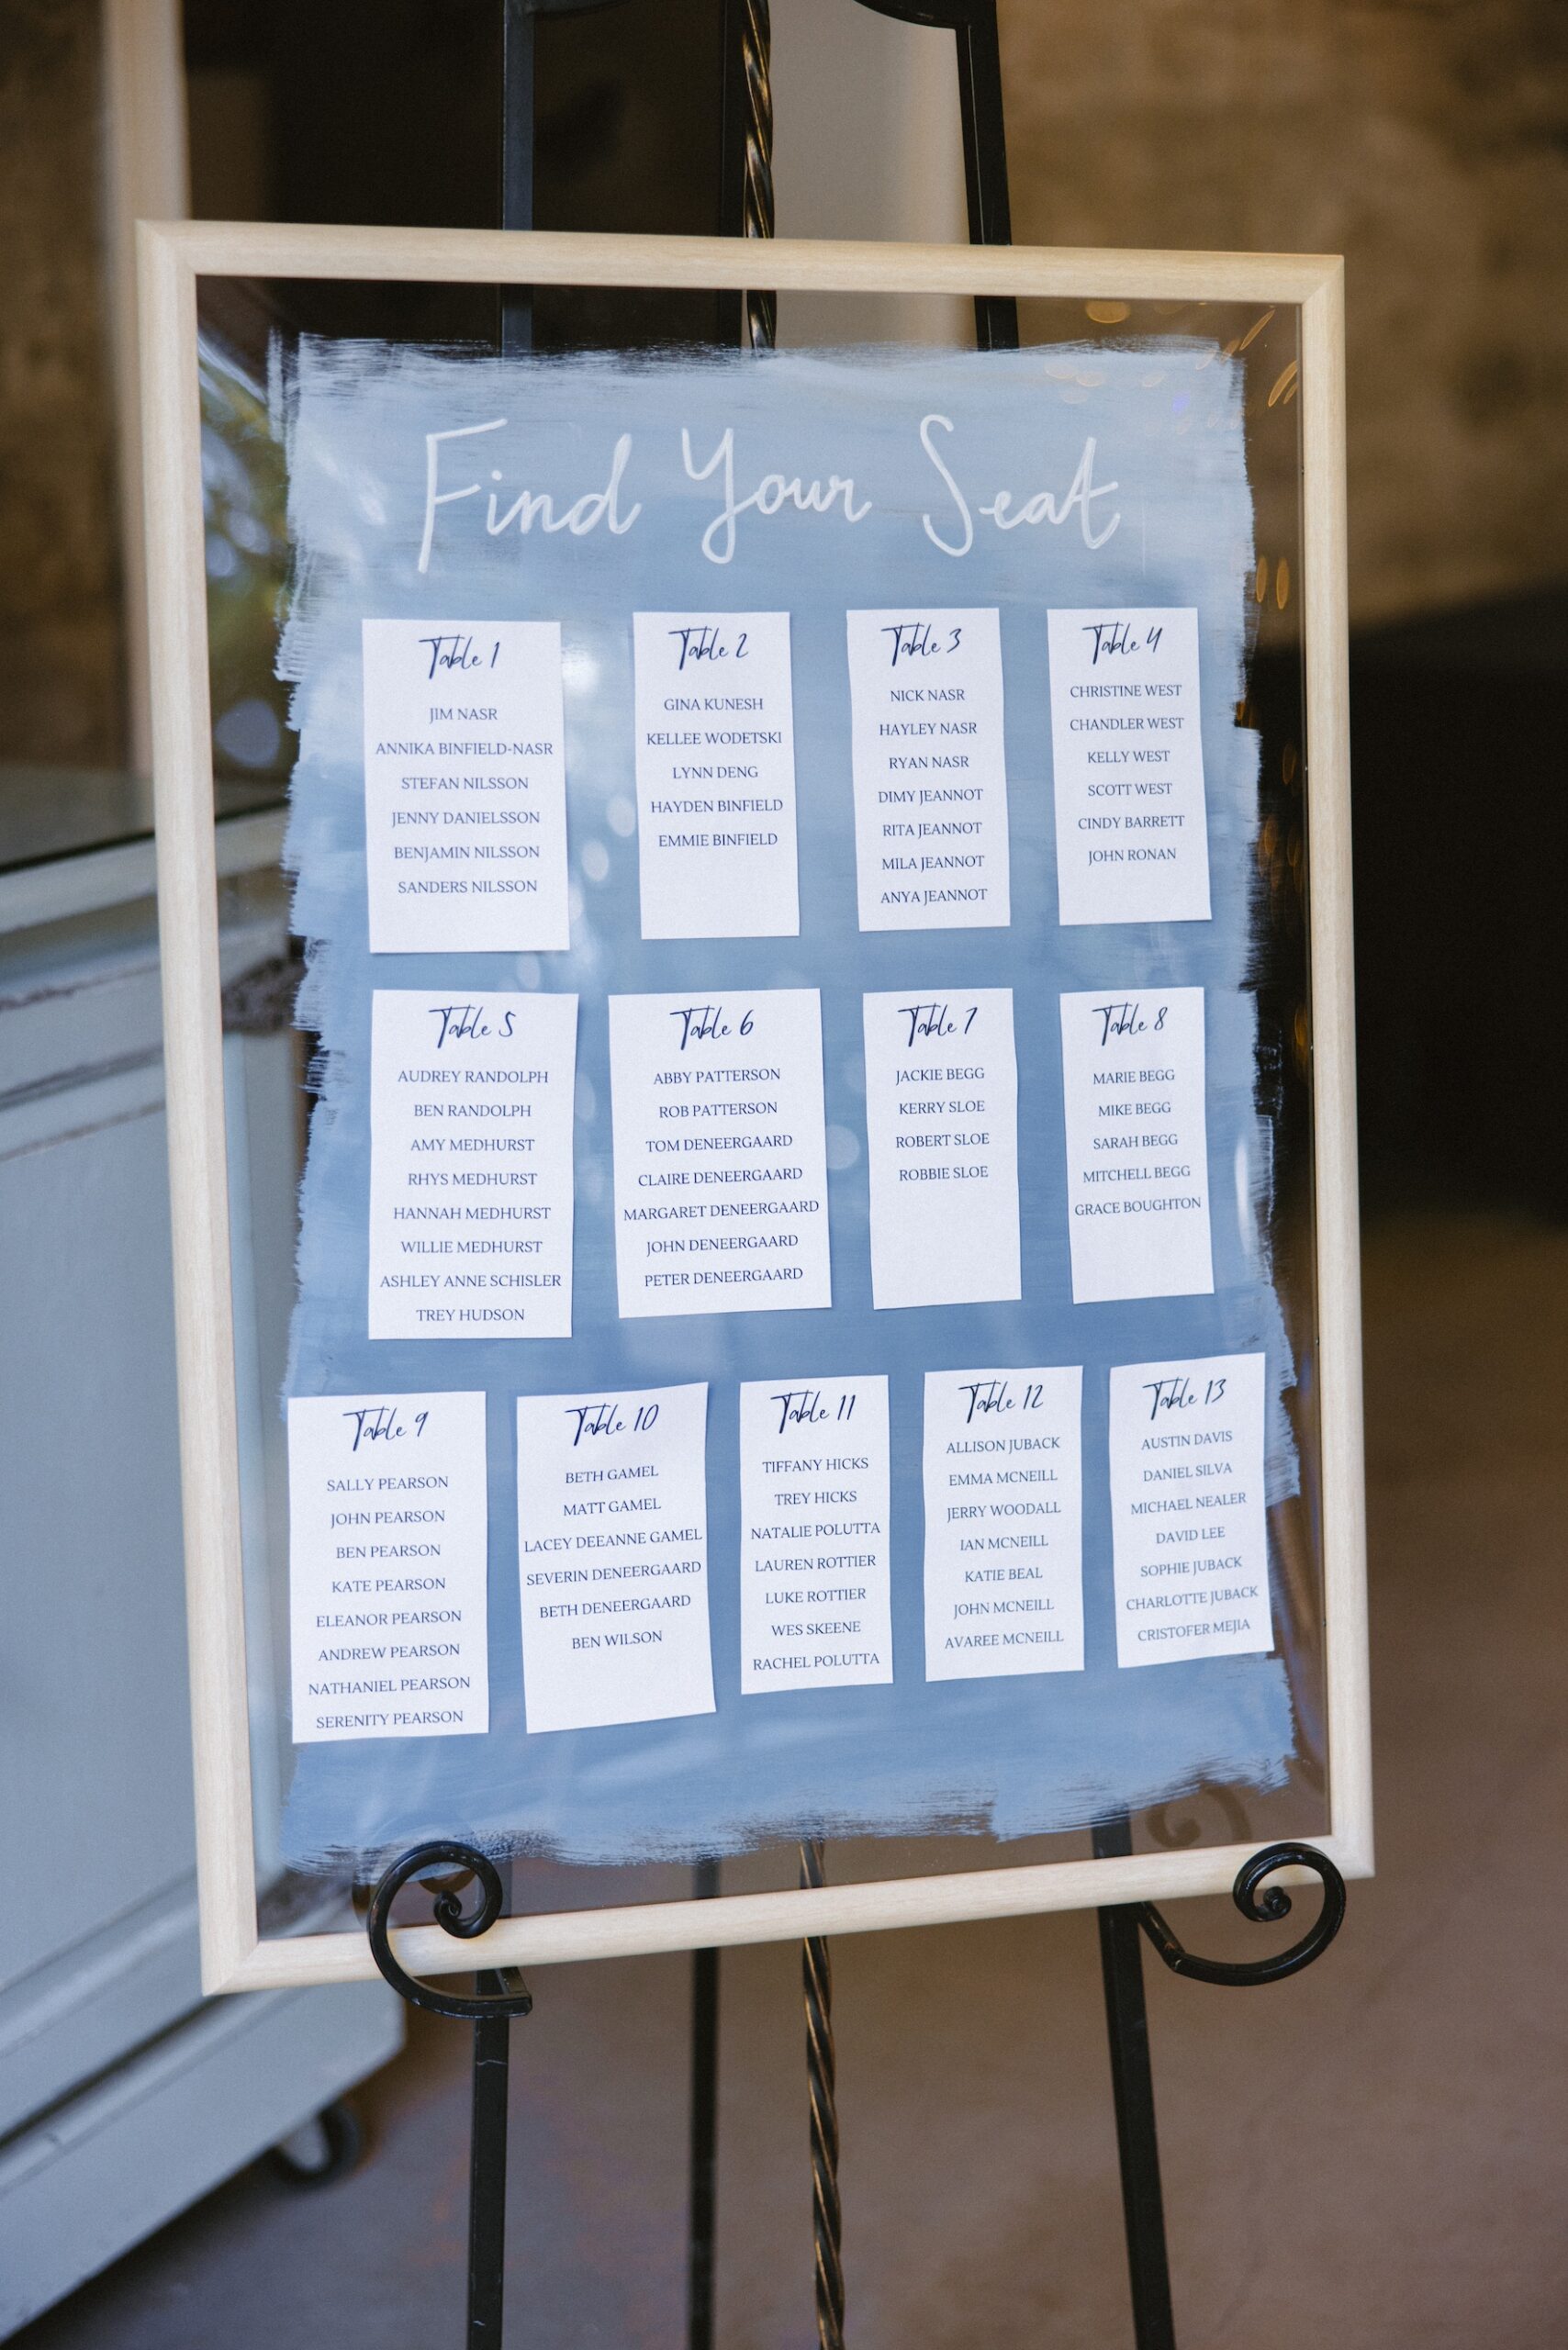 Find Your Seat
Table 1
JIM NASR
ANNIKA BINFIELD-NASR
STEFAN NILSSON
JENNY DANIELSSON
BENJAMIN NILSSON
SANDERS NILSSON
Table 2
GINA KUNESH
KELLEE WODETSKI
LYNN DENG
HAYDEN BINFIELD
EMMIE BINFIELD
Table 3
NICK NASR
HAYLEY NASR
RYAN NASR
DIMY JEANNOT
RITA JEANNOT
MILA JEANNOT
ANYA JEANNOT
Table 4
CHRISTINE WEST
CHANDLER WEST
KELLY WEST
SCOTT WEST
CINDY BARRETT
JOHN RONAN
Table 5
AUDREY RANDOLPH
BEN RANDOLPH
AMY MEDHURST
RHYS MEDHURST
HANNAH MEDHURST
WILLIE MEDHURST
ASHLEY ANNE SCHISLER
TREY HUDSON
Table 6
ABBY PATTERSON
ROB PATTERSON
TOM DENEERGAARD
CLAIRE DENEERGAARD
MARGARET DENEERGAARD
JOHN DENEERGAARD
PETER DENEERGAARD
Table 7
JACKIE BEGG
KERRY SLOE
ROBERT SLOE
ROBBIE SLOE
Table 8
MARIE BEGG
MIKE BEGG
SARAH BEGG
MITCHELL BEGG
GRACE BOUGHTON
Table 9
SALLY PEARSON
JOHN PEARSON
BEN PEARSON
KATE PEARSON
ELEANOR PEARSON
ANDREW PEARSON
NATHANIEL PEARSON
SERENITY PEARSON
Table 10
BETH GAMEL
MATT GAMEL
LACEY DEEANNE GAMEL
SEVERIN DENEERGAARD
BETH DENEERGAARD
BEN WILSON
Table 11
TIFFANY HICKS
TREY HICKS
NATALIE POLUTTA
LAUREN ROTTIER
LUKE ROTTIER
WES SKEENE
RACHEL POLUTTA
Table 12
ALLISON JUBACK
EMMA MCNEILL
JERRY WOODALL
IAN MCNEILL
KATIE BEAL
JOHN MCNEILL
AVAREE MCNEILL
Table 13
AUSTIN DAVIS
DANIEL SILVA
MICHAEL NEALER
DAVID LEE
SOPHIE JUBACK
CHARLOTTE JUBACK
CRISTOFER MEJIA